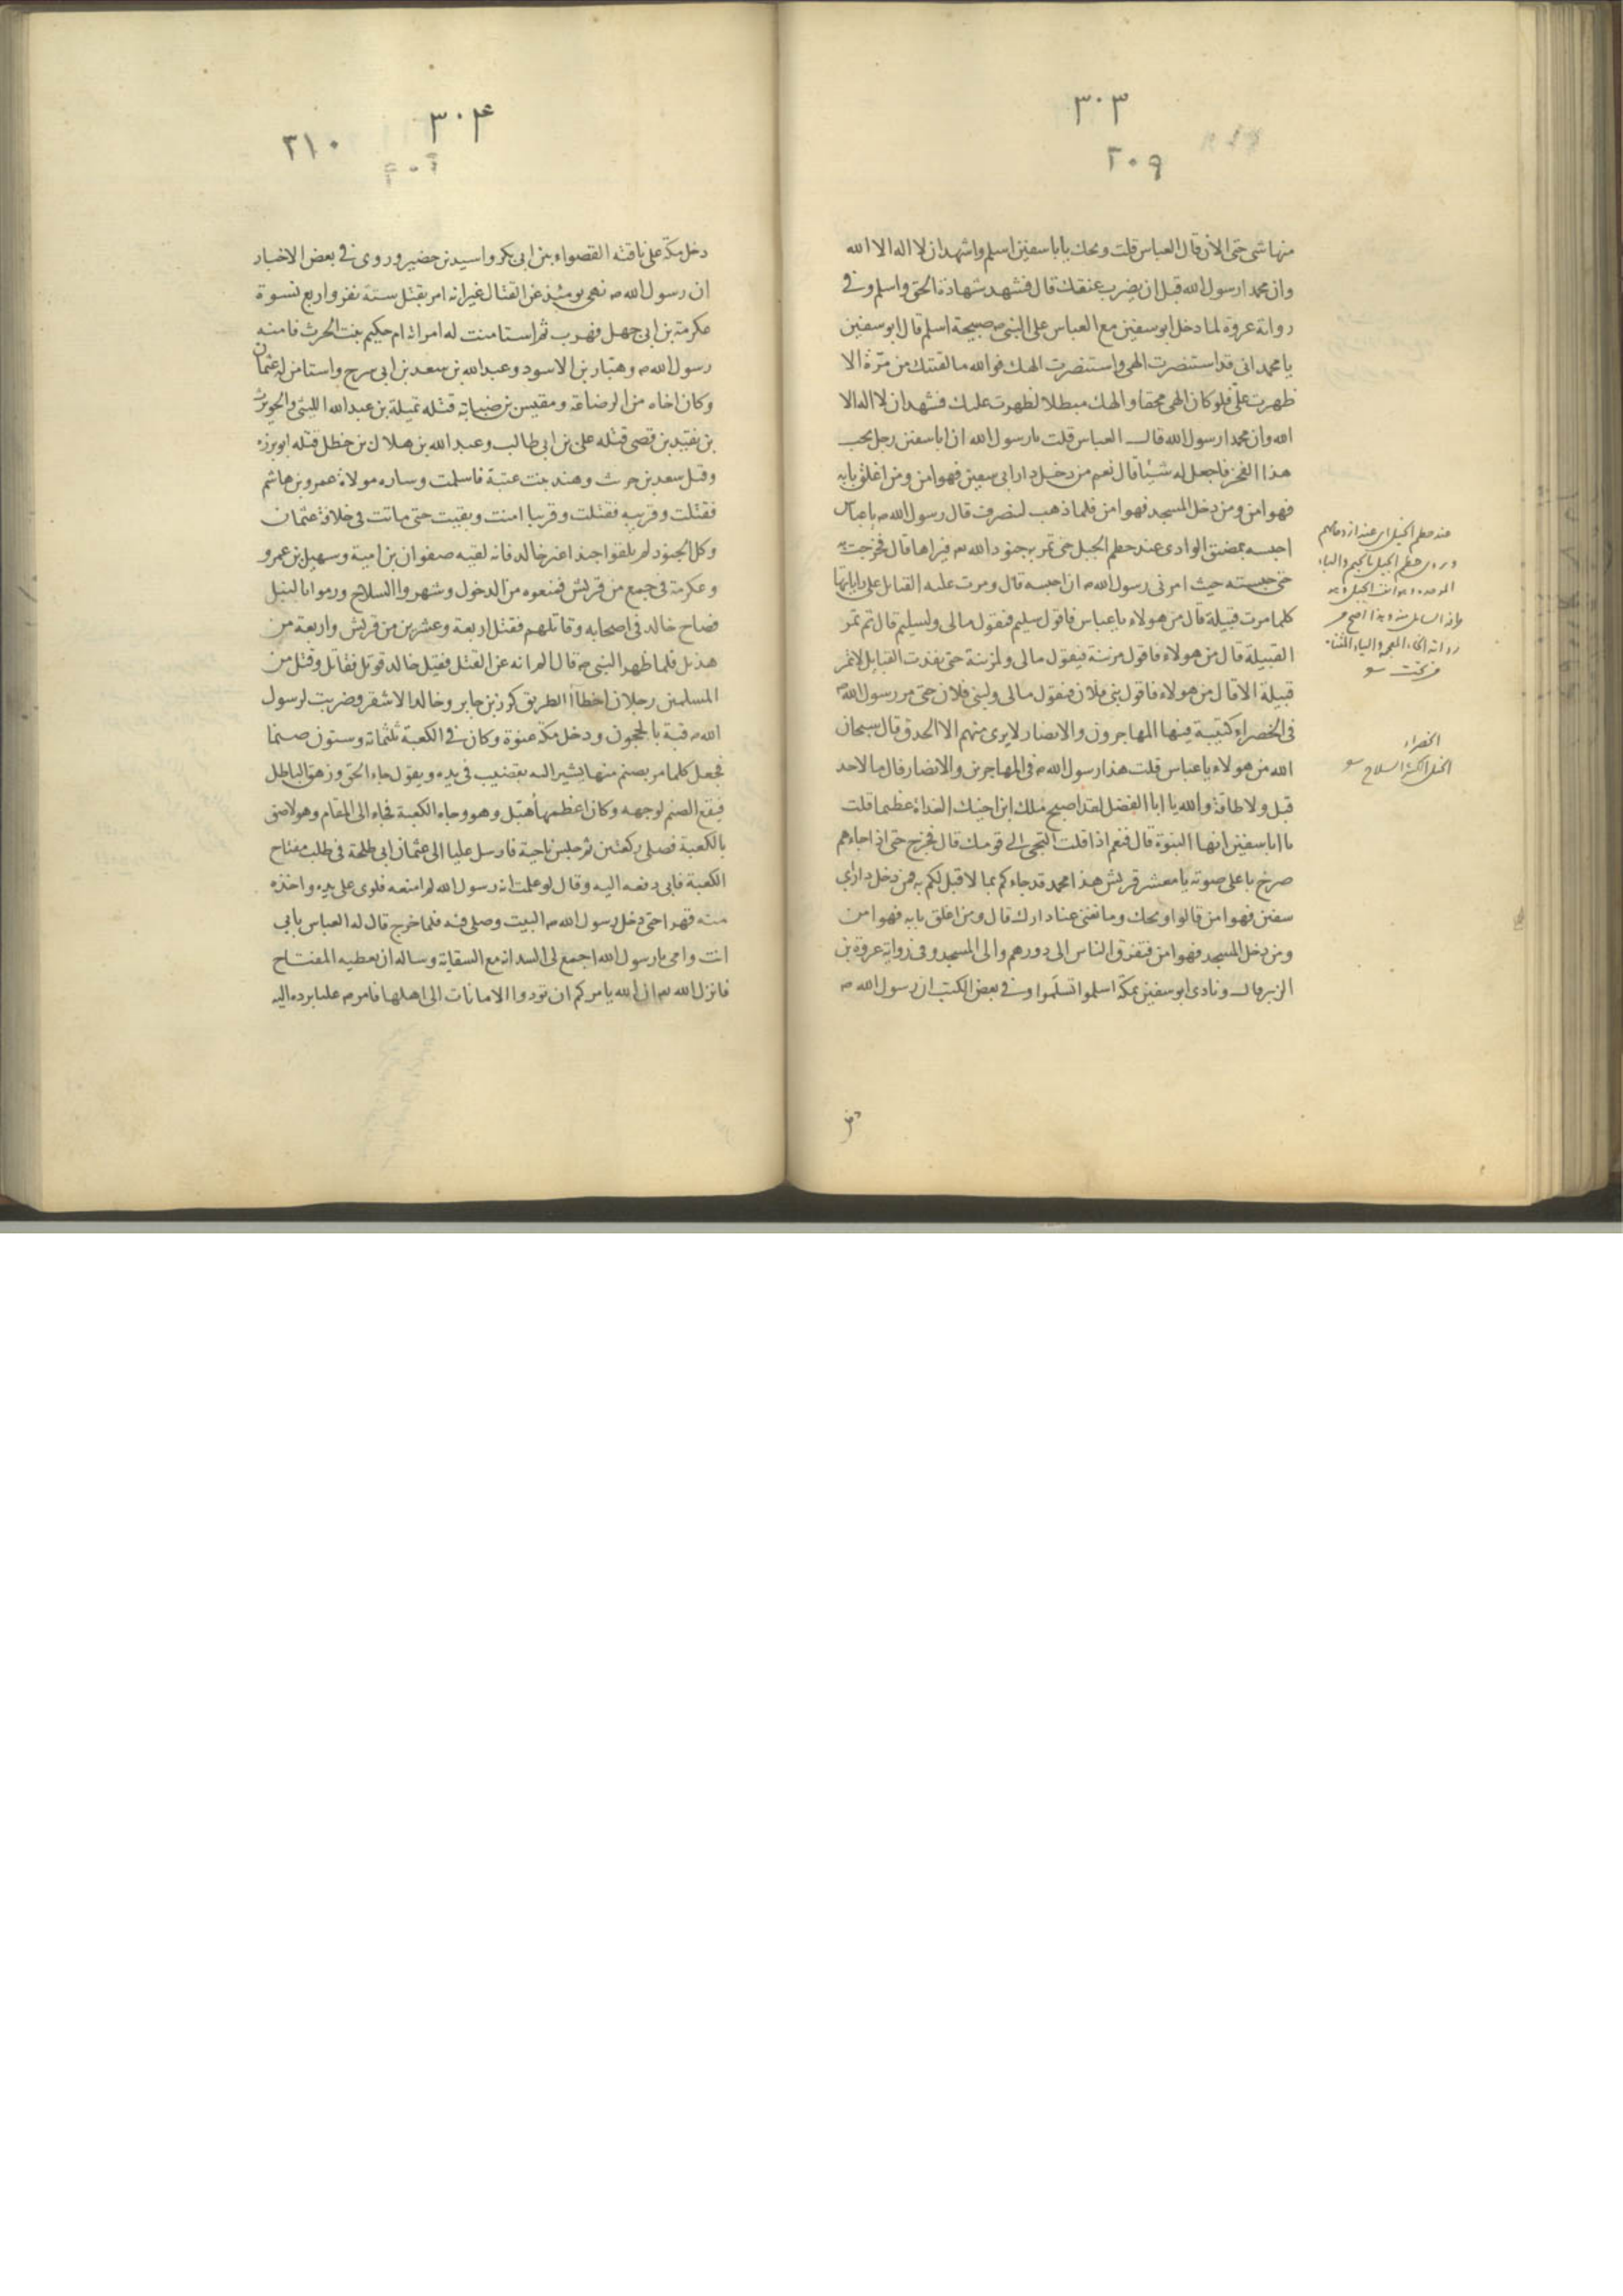 ٣٠٣
٢٠٩
منها شى حتى الان قال العباس قلت ويحك يا با سفين اسلم واشهد ان لا اله الا الله
وان محمدا رسول الله قبل ان يضرب عنقك قال فشهد شهادة الحق واسلم وفى
رواية عروة لما دخل ابو سفين مع العباس على النبى صبيحة اسلم قال ابو سفين
يا محمد انى قد استنصرت الهى واستنصرت الهك فوالله ما لقيتك من مرّة الا
ظهرت علىّ فلو كان الهى محقا والهك مبطلا لظهرت عليك فشهد ان لا اله الا
الله وان محمدا رسول الله قال العباس قلت يا رسول الله ان ابا سفين رجل يحب
هذا الفخر فاجعل له شيئا قال نعم من دخل دار ابى سفين فهو امن ومن اغلق بابه
فهو امن ومن دخل المسجد فهو امن فلما ذهب لينصرف قال رسول الله ص يا عباس
احبسه بمضيق الوادى عند حطم الجبل حتى تمر به جنود الله فيراها قال فخرجت به
حتى حبسته حيث امرنى رسول الله ص ان احبسه قال ومرت عليه القبايل على راياتها
كلما مرت قبيلة قال من هولاء يا عباس فاقول سليم فيقول مالى ولسليم قال ثم تمر
القبيلة قال من هولاء فاقول مزينة فيقول مالى ولمزينة حتى نفدت القبايل لا تمر
قبيلة الا قال من هولاء فاقول بنى فلان فيقول مالى ولبنى فلان حتى مر رسول الله ص
فى الخضراء كتيبة فيها المهاجرون والانصار لا يرى منهم الا الحدق قال سبحان
الله من هولاء يا عباس قلت هذا رسول الله ص فى المهاجرين والانصار قال ما لاحد
قبل ولا طاقة والله يا ابا الفضل لقد اصبح ملك ابن اخيك الغداة عظيما قلت
يا ابا سفين انها النبوة قال فنعم اذا قلت التجى الى قومك قال فخرج حتى اذا جاءهم
صرخ با على صوته يا معشر قريش هذا محمد قد جاءكم بما لا قبل لكم به فمن دخل دار ابى
سفين فهو امن قالوا ويحك وما تغنى عنا دارك قال ومن اغلق بابه فهو امن
ومن دخل المسجد فهو امن فتفرق الناس الى دورهم والى المسجد وفى رواية عروة بن
الزبير قال ونادى ابو سفين بمكة اسلموا تسلموا وفى بعض الكتب ان رسول الله ص
عند حطم الخيل اى عند ازدحامهم
وروى خطم الجبل بالجيم والباء
الخضراء
٣٠۴
٣١٠
دخل مكّة على ناقته القصواء بين ابى بكر واسيد بن حضير وروى فى بعض الاخبار
ان رسول الله ص نهى يومئذ عن القتال غير انه امر بقتل ستة نفر واربع نسوة
عكرمة بن ابى جهل فهرب ثم استامنت له امراته ام حكيم بنت الحرث فامنه
رسول الله ص وهبّار بن الاسود وعبد الله بن سعد بن ابى سرح واستامن له عثمان
وكان اخاه من الرضاعة ومقيس بن ضبابة قتله تميلة بن عبد الله الليثى والحويرث
بن نقيد بن قصى قتله على بن ابى طالب وعبد الله بن هلال بن خطل قتله ابو برزه
وقيل سعد بن حرث وهند بنت عتبة فاسلمت وساره مولاة عمرو بن هاشم
فقتلت وقريبه فقتلت وقريبا امنت وبقيت حتى ماتت فى خلافة عثمان
وكل الجنود لم يلقوا جندا غير خالد فانه لقيه صفوان بن امية وسهيل بن عمرو
وعكرمة فى جمع من قريش فمنعوه من الدخول وشهروا السلاح ورموا بالنبل
فصاح خالد فى اصحابه وقاتلهم فقتل اربعة وعشرين من قريش واربعة من
هذيل فلما ظهر النبى ص قال الم انه عن القتل فقيل خالد قوتل فقاتل وقتل من
المسلمين رجلان اخطأا الطريق كرز بن جابر وخالد الاشقر وضربت لرسول
الله ص قبة بالحجون ودخل مكة عنوة وكان فى الكعبة ثلثماتة وستون صنما
فجعل كلما مر بصنم منها يشير اليه بقضيب فى يده ويقول جاء الحق وزهق الباطل
فيقع الصنم لوجهه وكان اعظمها هبل وهو وجاه الكعبة فجاء الى المقام وهو لاصق
بالكعبة فصلى ركعتين ثم جلس ناحية فارسل عليا الى عثمان ابى طلحة فى طلب مفتاح
الكعبة فابى دفعه اليه وقال لو علمت انه رسول الله لم امنعه فلوى على يده واخذه
منه قهرا حتى دخل رسول الله ص البيت وصلى فيه فلما خرج قال له العباس بابى
انت وامى يا رسول الله اجمع لى السدانة مع السقاية وساله ان يعطيه المفتاح
فانزل الله ان الله يامركم ان تودوا الامانات الى اهلها فامر ص عليا برده اليه